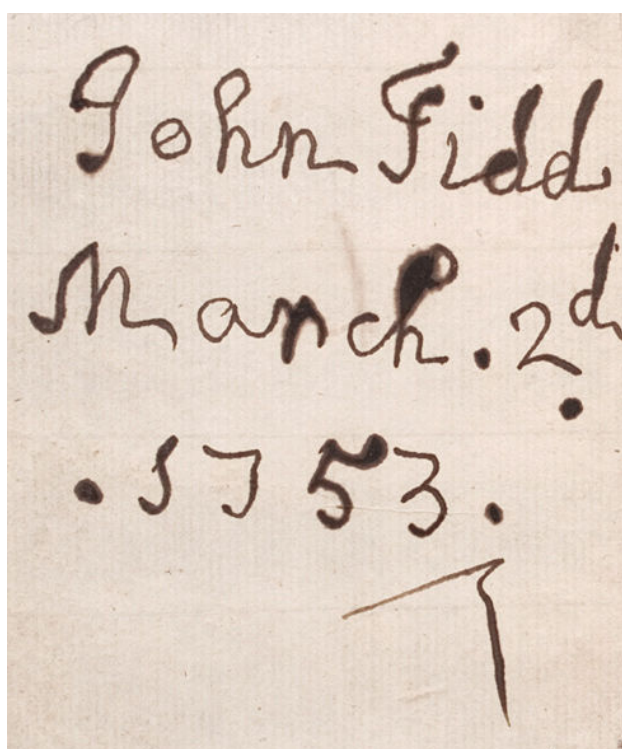 John Fidd
March. 2d
. 1753.